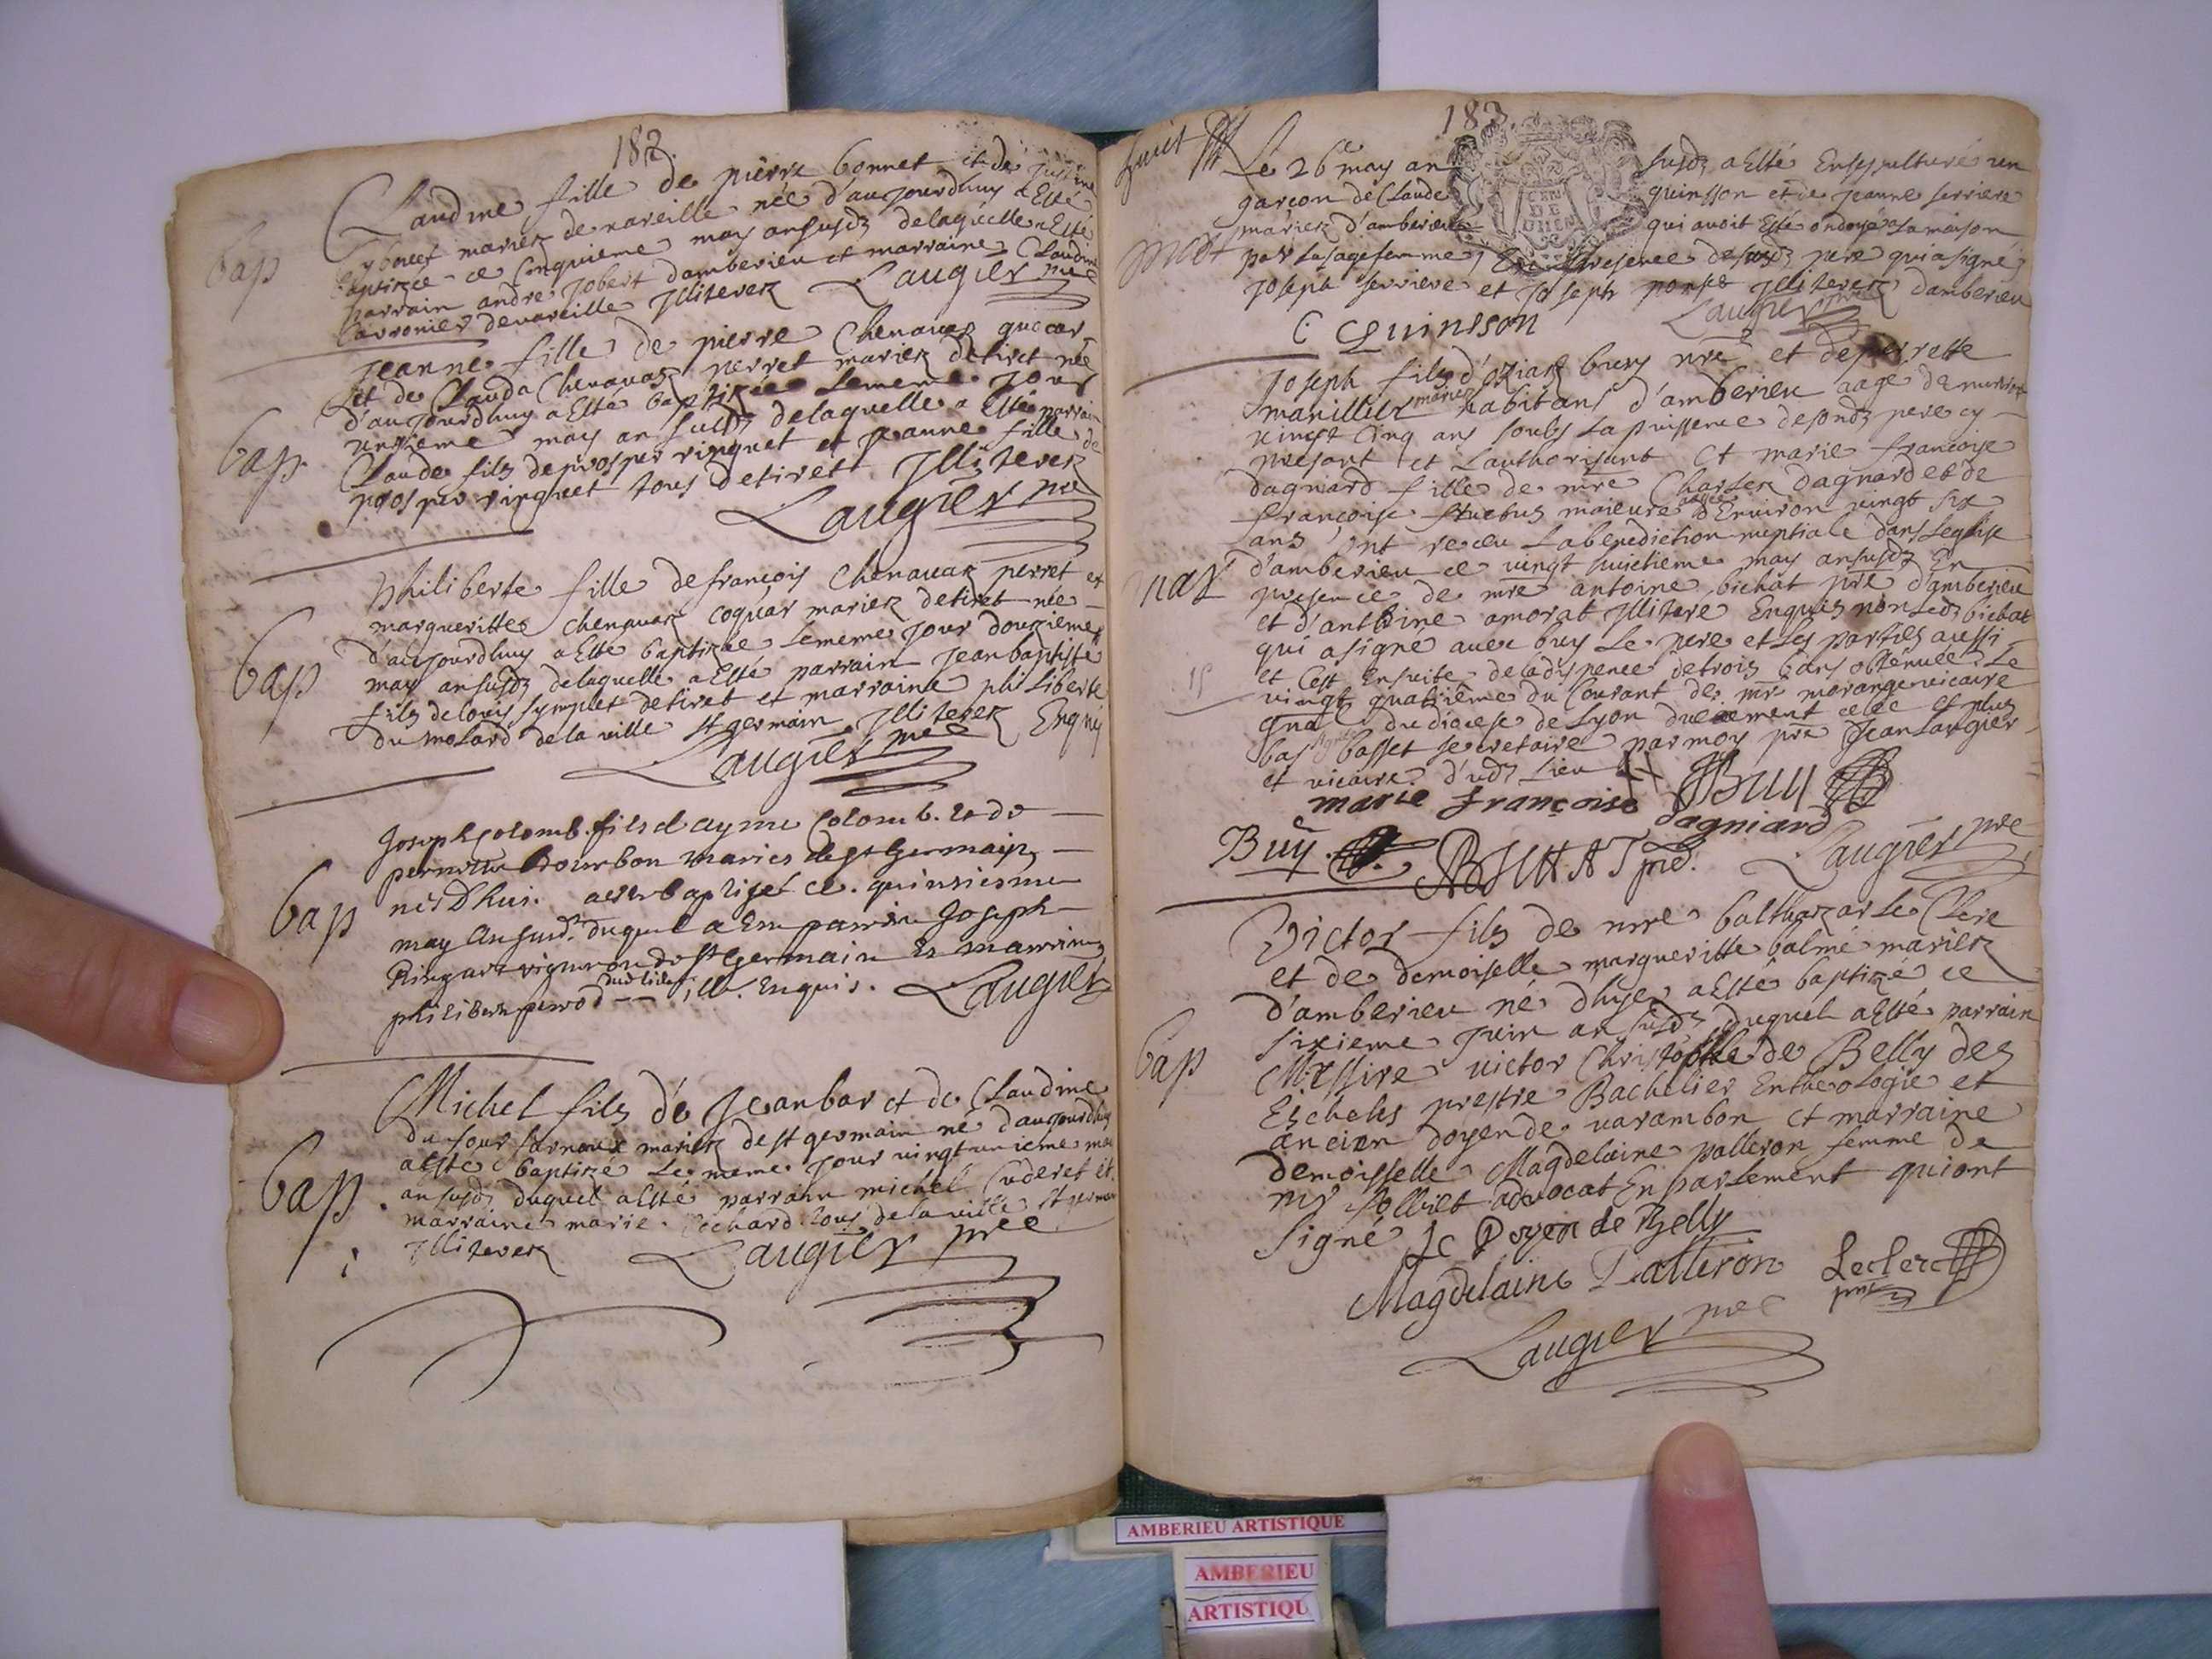 182.
bap
Claudine fille de pierre bonnet et de Justine
tybouet mariez de vareille née d'aujourdhuy a Esté
baptizée ce Cinquieme may an susdz delaquelle a Esté
parrain andre Jobert damberieu et marraine Claudine
Carronier devareille Illiterez Laugier pre
bap
Jeanne fille de pierre Chenavaz quocar
et de Clauda Chenavaz perret mariez detiret née
d'aujourdhuy a Esté baptizée Lememe Jour
unzieme may an susdz delaquelle a Esté parrain
Claude fils deprosper vinquet et Jeanne fille de
prosper vinquet tous detiret Illiterez
Laugier pre
bap
philiberte fille defrançois Chenavaz perret et
margueritte Chenavaz coquar mariez detiret née
d'aujourdhuy a Esté baptizée Lememe Jour douzieme
may an susdz delaquelle a Esté parrain Jean baptiste
fils delouis symplet detiret et marraine philiberte
du molard de la ville st germain Illiterez Enquis
Laugier pre
bap
Joseph Colomb fils d'ayme Colomb et de
pernette bourbon maries de st Germain
nes Dhui a este baptiset ce quinsiesme
may an susd. duquel a Este parrin Joseph
vigneron de st Germain Et marrine
philiberte perrod dud lieu ill. Enquis. Laugier
bap
Michel fils de Jean bar et de Claudine
du four Carnoux mariez de st germain né d'aujourdhuy
a Esté baptizé Le meme Jour vingtunieme may
an susdz duquel a Esté parrain michel Cuderet et
marraine marie Bechard tous de la ville st germain
Illiterez Laugier pre
183.
suit
mort
Le 26e may an susdz a Esté Ensepulturé un
garçon de Claude quinsson et de Jeanne serriere
mariez d'amberieu qui avoit Esté ondoyé a La maison
par La sage femme, En presence dususdz pere qui a signé
Joseph serriere et Joseph Illiterez damberieu
C Quinsson Laugier pre
mar
Joseph fils d'oziaz buy nre et de perrette
manillier mariez habitans d'amberieu aage de
vingt Cinq ans soubs La puissence desondz pere cy
present et Lauthorisant Et marie francoise
dagnard fille de mre Charles dagnard et de
françoise maieure aagée d'Environ vingt six
ans ont receu La benediction nuptiale dans Leglise
d'amberieu ce vingt huictieme may an susdz En
presence de mre antoine bichat pre d'amberieu
et d'antoine amorat Illitere Enquis non Ledz bichat
qui a signé avec buy Le pere et Les parties aussi
et C'est Ensuite de la dispence de trois bans obtenue Le
vingt quatrieme du Courant de mr morange vicaire
gnal du diocese de Lyon duement celée et plus
bas signé basset secretaire par moy pre Jean Laugier
et vicaire d'udz Lieu
marie françoise dagniard JBuy
Buy ABICHAT pre. Laugier pre
bap
Victor fils de mre balthazar Le Clerc
et de demoiselle margueritte balmé mariez
d'amberieu né d'hyer a Esté baptizé ce
sixieme Juin an susdz duquel a Esté parrain
Messire victor Christophle de Belly des
Eschelles prestre Bachelier Entheologie et
ancien doyen de varambon et marraine
demoisselle Magdelaine palleron femme de
mr solliet advocat En parlement qui ont
signé Le Doyen de Belly
Magdelaine Palleron Leclerc
Laugier pre
AMBERIEU ARTISTIQUE
AMBERIEU
ARTISTIQU